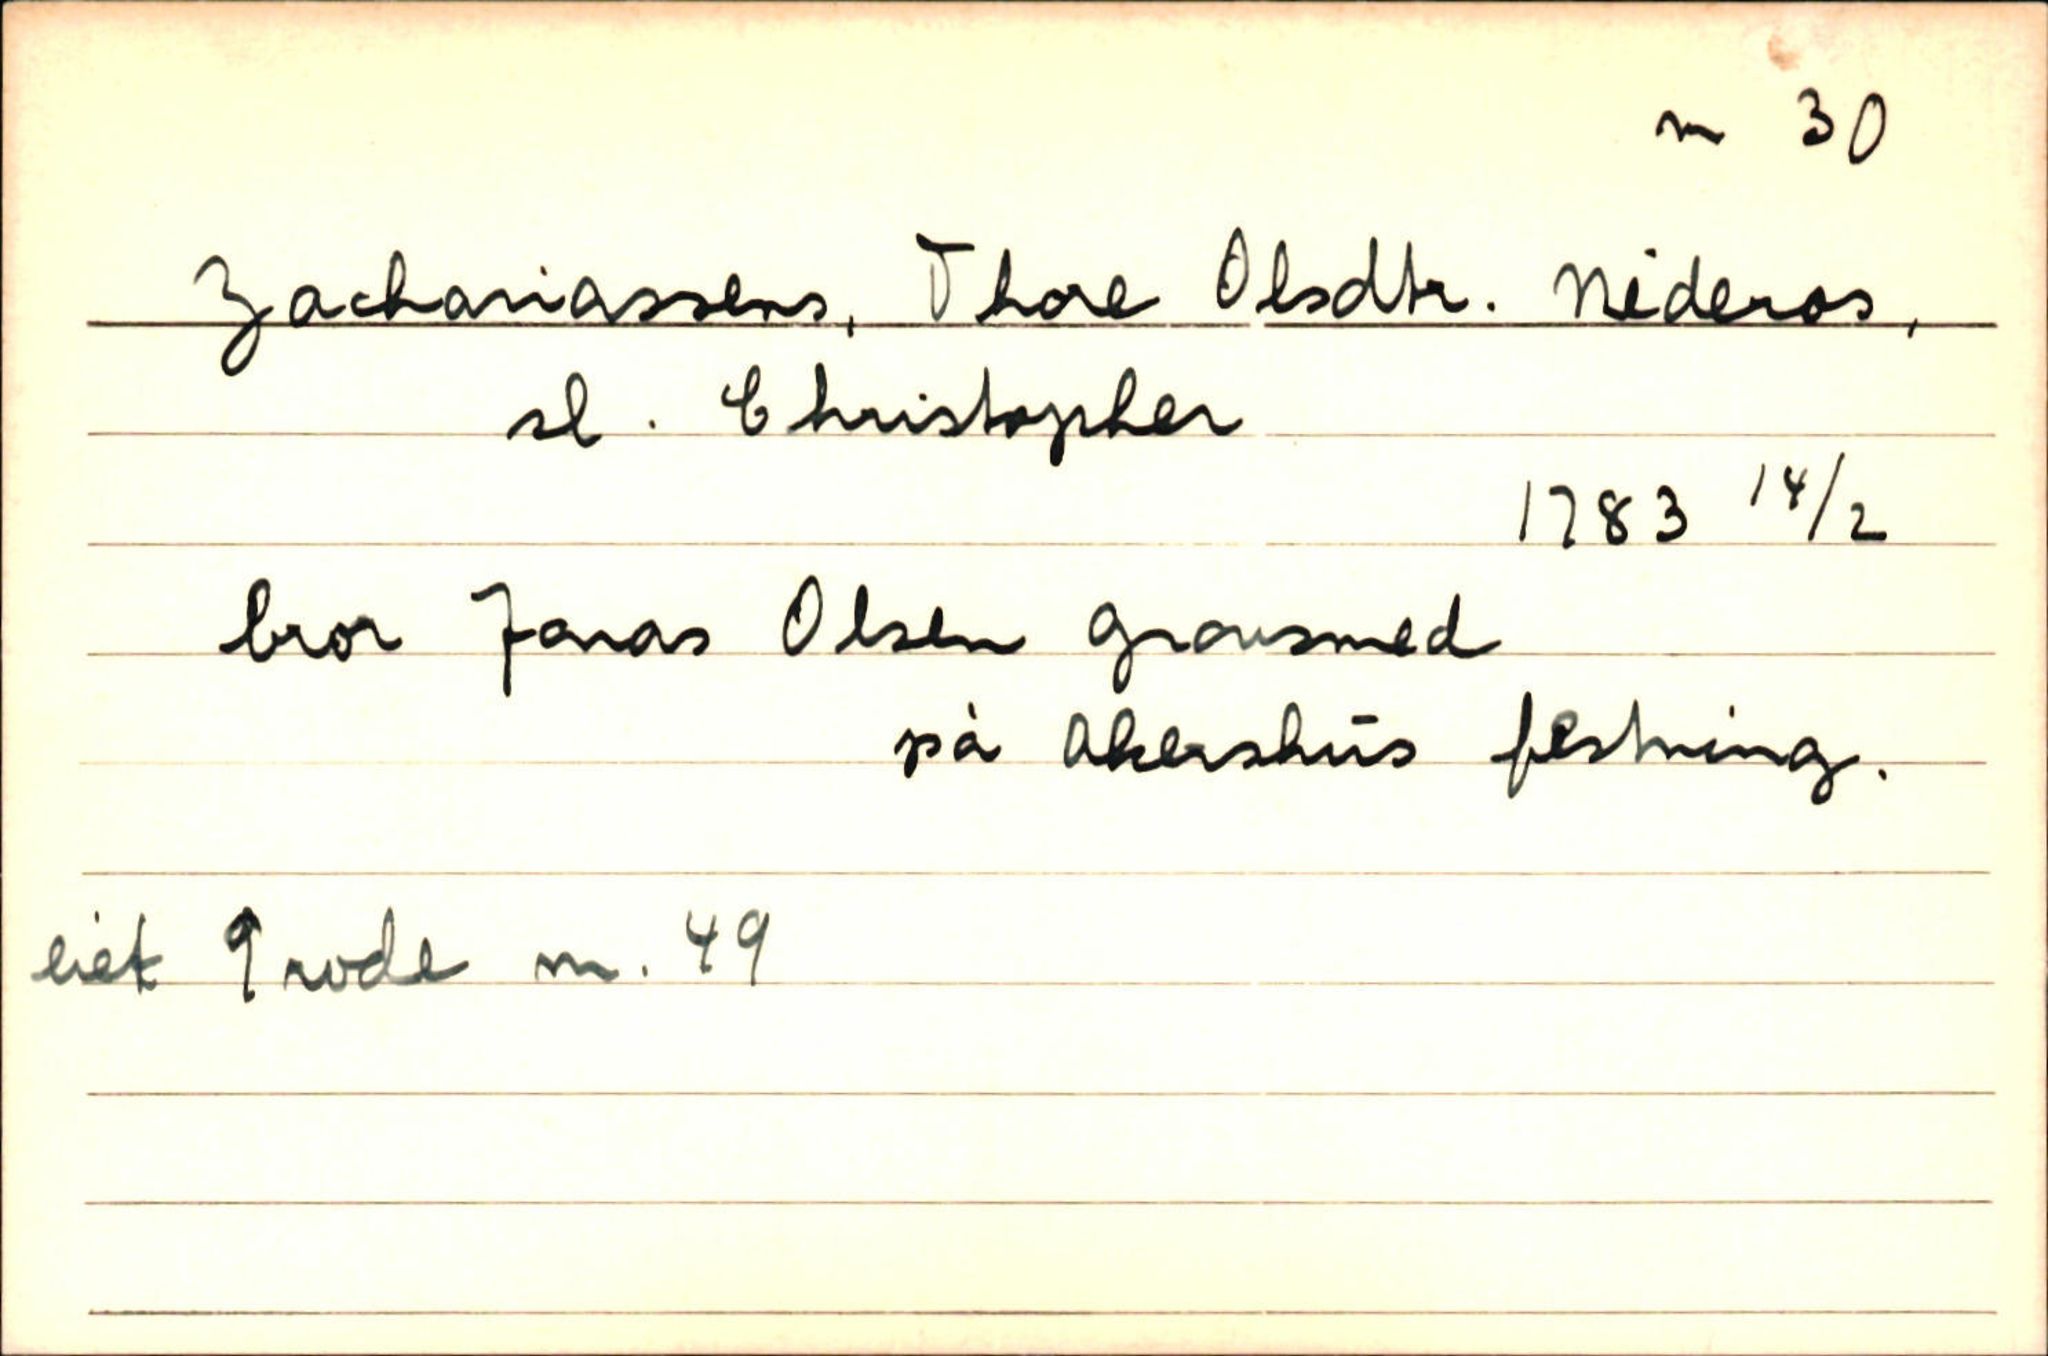 m 30
Zachariassens, Thore Olsdtr. Nideros,
sl. Christopher
1783 14/2
bror Jonas Olsen grovsmed
på Akershus festning.
eiet 9 rode m. 49